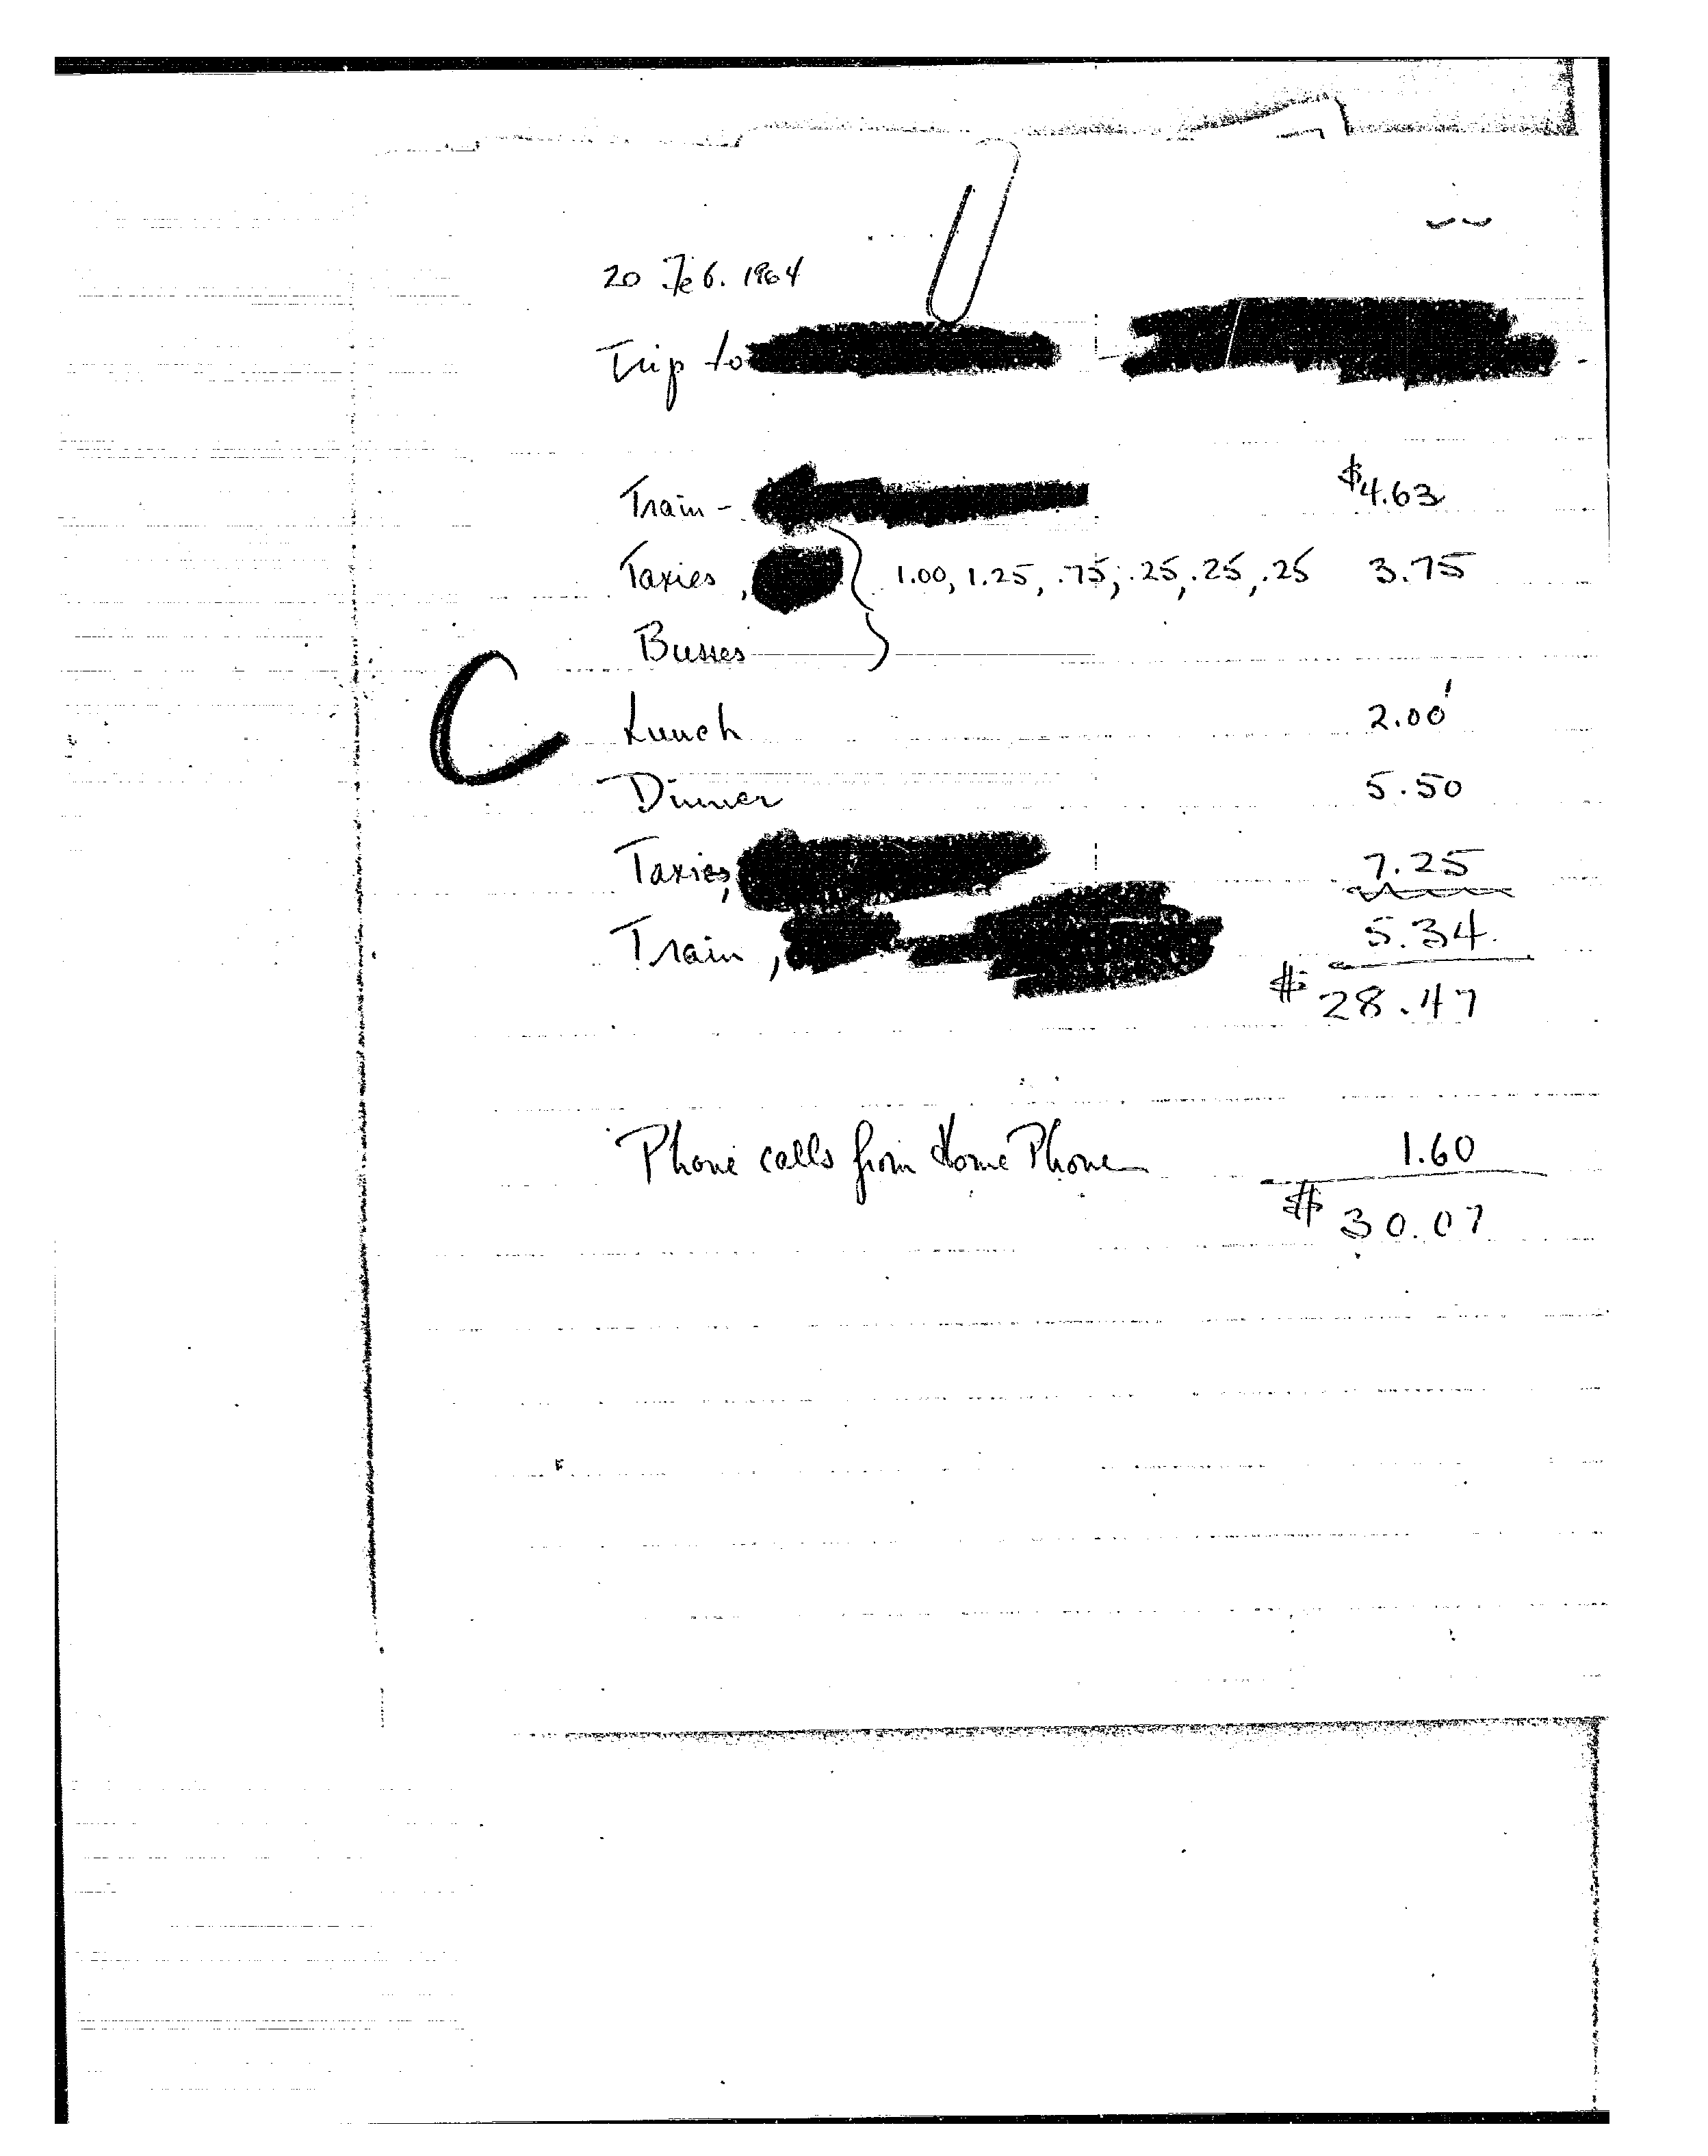 20 Feb. 1964
Trip to
Train - $4.63
Taxies, 1.00, 1.25, .75, .25, .25, .25 3.75
Busses
C
Lunch 2.00
Dinner 5.50
Taxies, 7.25
Train, 5.34
$28.47
Phone calls from Home Phone 1.60
$30.07